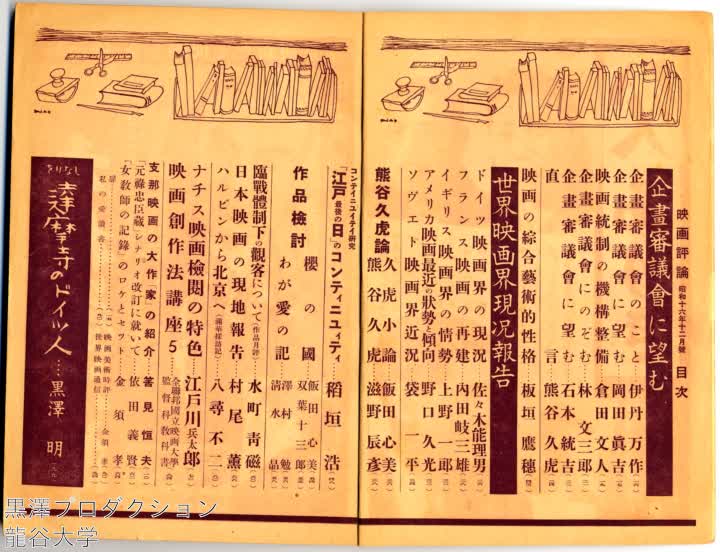 映画評論 昭和十六年十二月號 目次
企畫審議會に望む
企畫審議會のこと 伊丹万作
企畫審議會に望む 岡田眞吉
映画統制の機構整備 倉田文人
企畫審議會にのぞむ 林文三郎
企畫審議會に望む 石本統吉
直言 熊谷久虎
映画の綜合藝術的性格 板垣鷹穗
世界映画界現況報告
ドイツ映画界の現況 佐々木能理男
フランス映画の再建 內田岐三雄
イギリス映画界の情勢 上野一郎
アメリカ映画最近の狀勢と傾向 野口久光
ソヴエト映画界近況 袋一平
熊谷久虎論
久虎小論 飯田心美
熊谷久虎 滋野辰彥
コンテイニユイテイ研究
「江戸最後の日」のコンティニュィティ 稻垣浩
作品檢討
櫻の國 飯田心美 双葉十三郎
わが愛の記 澤村勉 淸水晶
臨戰體制下の觀客について(作品月評) 水町靑磁
日本映画の現地報告 村尾薰
ハルピンから北京へ 八尋不二
ナチス映画檢閱の特色 江戸川兵太郎
映画創作法講座5 全聯邦國立映画大學監督科敎科書
支那映画の大作「家」の紹介 筈見恒夫
「元祿忠臣藏」シナリオ改訂に就いて 依田義賢
「女敎師の記錄」のロケとセット 金須孝
私の愛讀書
映画美術時評 金須孝
世界映画通信
達磨寺のドイツ人…黑澤明
黒澤プロダクション
龍谷大学